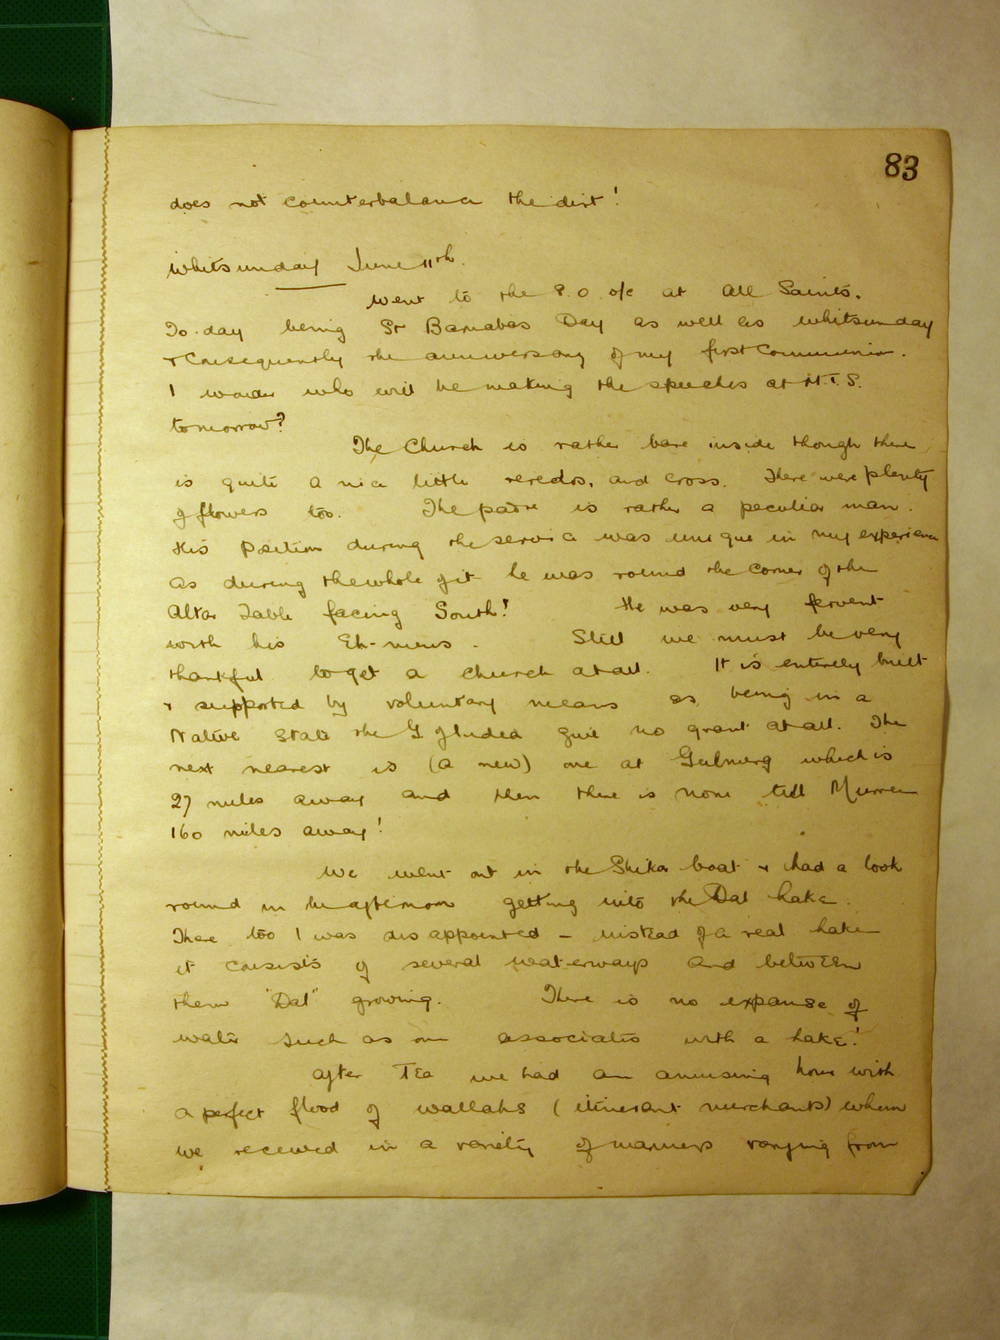 83
does not counterbalance the dirt!
Whitsunday June 11th.
Went to the 8.0 o/c at All Saints.
To-day being St Barnabas Day as well as Whitsunday
& consequently the anniversary of my first Communion.
I wonder who will be making the speeches at H.T.S.
tomorrow?
The Church is rather bare inside though there
is quite a nice little reredos, and cross. There were plenty
of flowers too. The padre is rather a peculiar man.
His position during the service was unique in my experience
as during the whole of it he was round the corner of the
Altar Table facing South! He was very fervent
with his Eh-mens. Still we must be very
thankful to get a church at all. It is entirely built
& supported by voluntary means as being in a
Native State the G of India give no grant at all. The
next nearest is (a new) one at Gulmerg which is
27 miles away and then there is none till Murree
160 miles away!
We went out in the Shikar boat & had a look
round in the afternoon getting into the Dal Lake.
There too I was disappointed - instead of a real lake
it consists of several waterways and between
them "Dal" growing. There is no expanse of
water such as one associates with a lake!
After Tea we had an amusing hour with
a perfect flood of wallahs (itinerant merchants) whom
we received in a variety of manners varying from